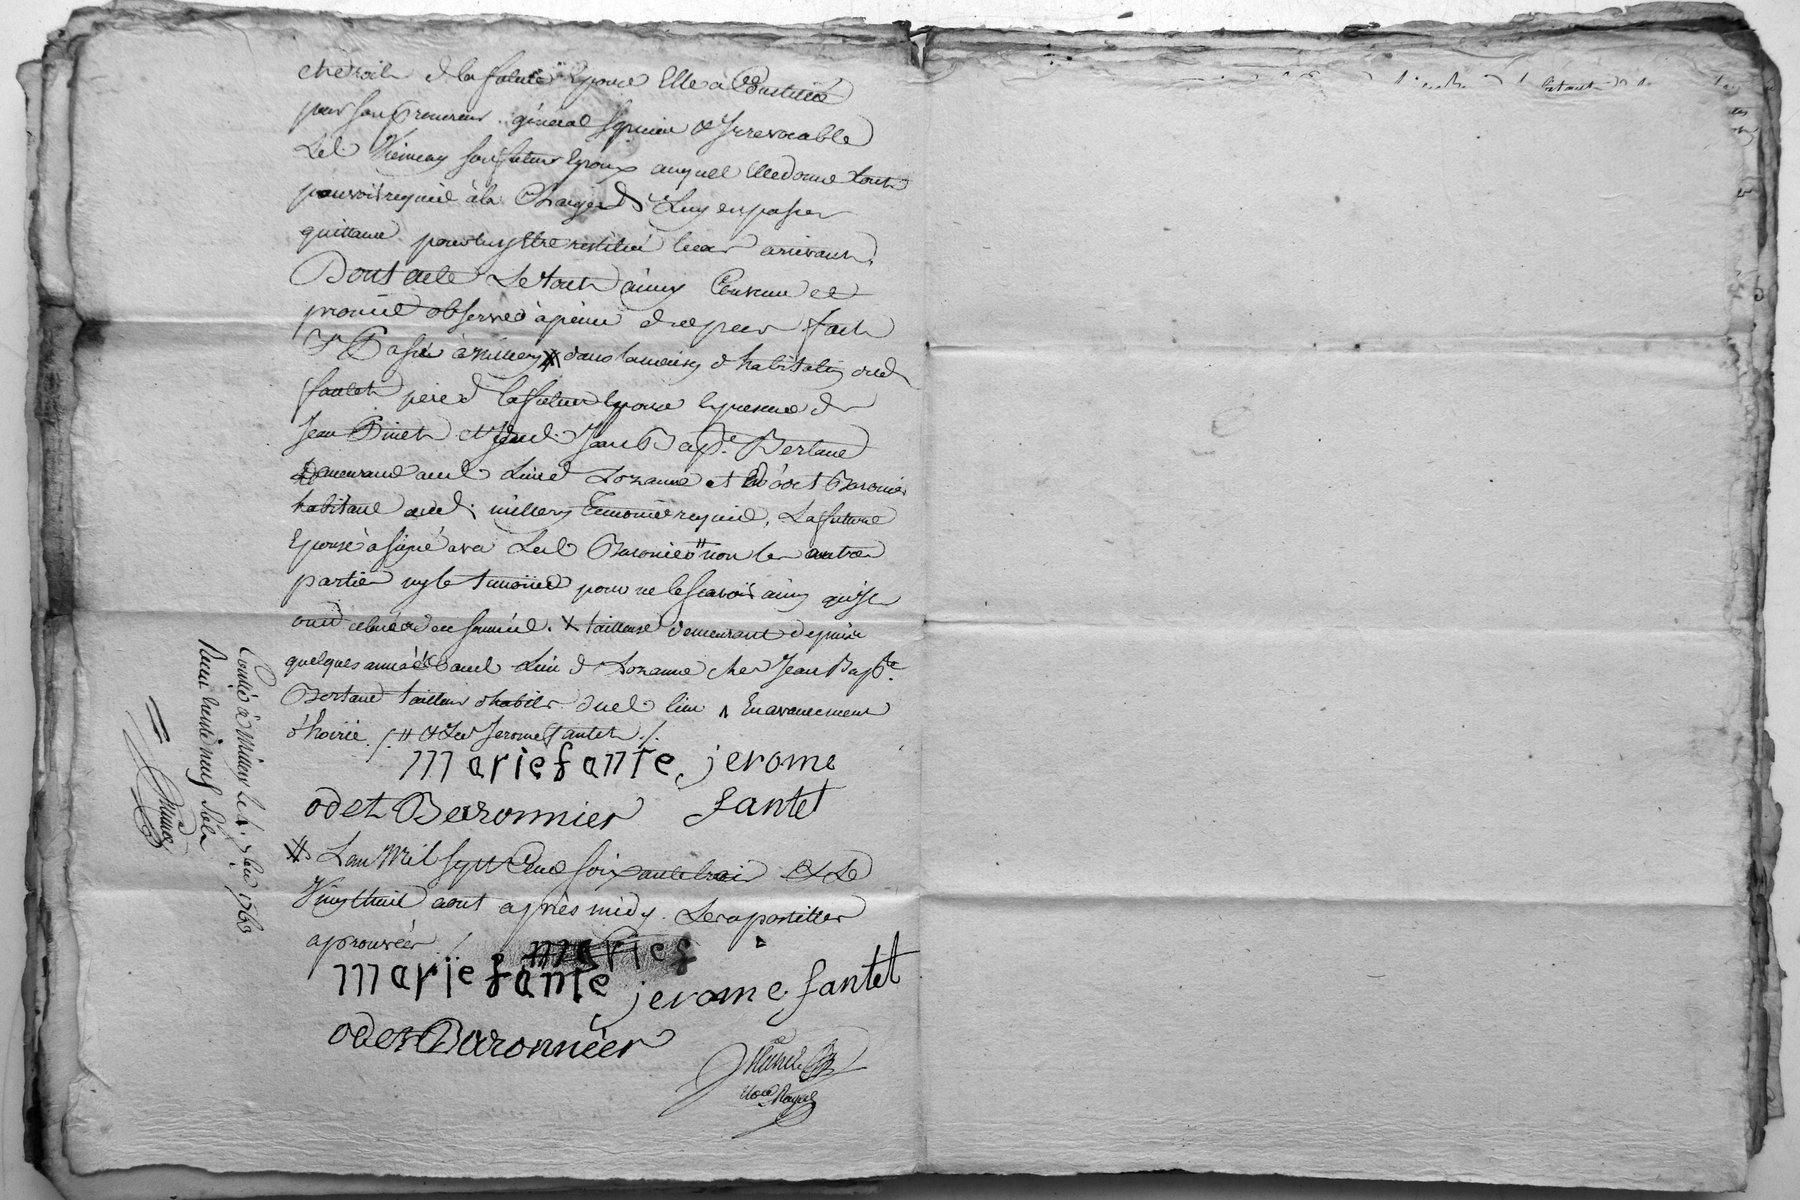 et droits de la future Epouse Elle a Constitué
pour son procureur général spécial & Irrevocable
Led. son futur Epoux auquel Elle donne tout
pouvoir requis à la Charge de Luy en passer
quittance pour luy Etre restitué le cas arrivant.
Dont acte Le tout ainsy Convenu et
promis observer à peine de depens fait
& Passé à millery # dans la maison d'habitation dud.
fantet pere de la future Epouse En presence de
Jean Pinet et Jean Bapte. Bertaud
demeurant aud. Lieu de Lozanne et Odet Baronnier
habitant aud. millery temoins requis, La future
Epouse a signé avec Led. Baronier # non les autres
parties ny le temoins pour ne le scavoir ainsy qu'ils
ont declaré de ce sommés. X tailleuse demeurant depuis
quelques années aud. Lieu de Lozanne chez Jean Bapte.
Bertaud tailleur d'habits dud. lieu ʌ En avancement
d'hoirie /. # & Led Jerome fantet ./.
marie fante, jerome
odet Baronnier fantet
# L'an Mil Sept Cent Soixante trois & Le
Vingt huit aout après midy. Les apostilles
aprouvées /.
maries
marie fante jerome fantet
odet Baronnier
Nore. Royal
Controlé à Millery le 7bre 1763
Reçu trente neuf sols